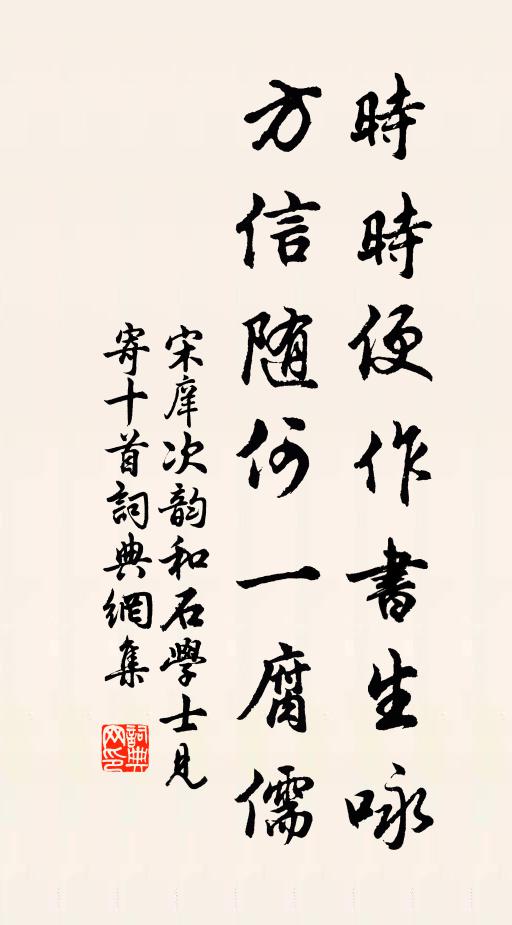 時時便作書生咏
方信随何一腐儒
宋庠次韵和石學士見
寄十首詞典網集
詞典網印